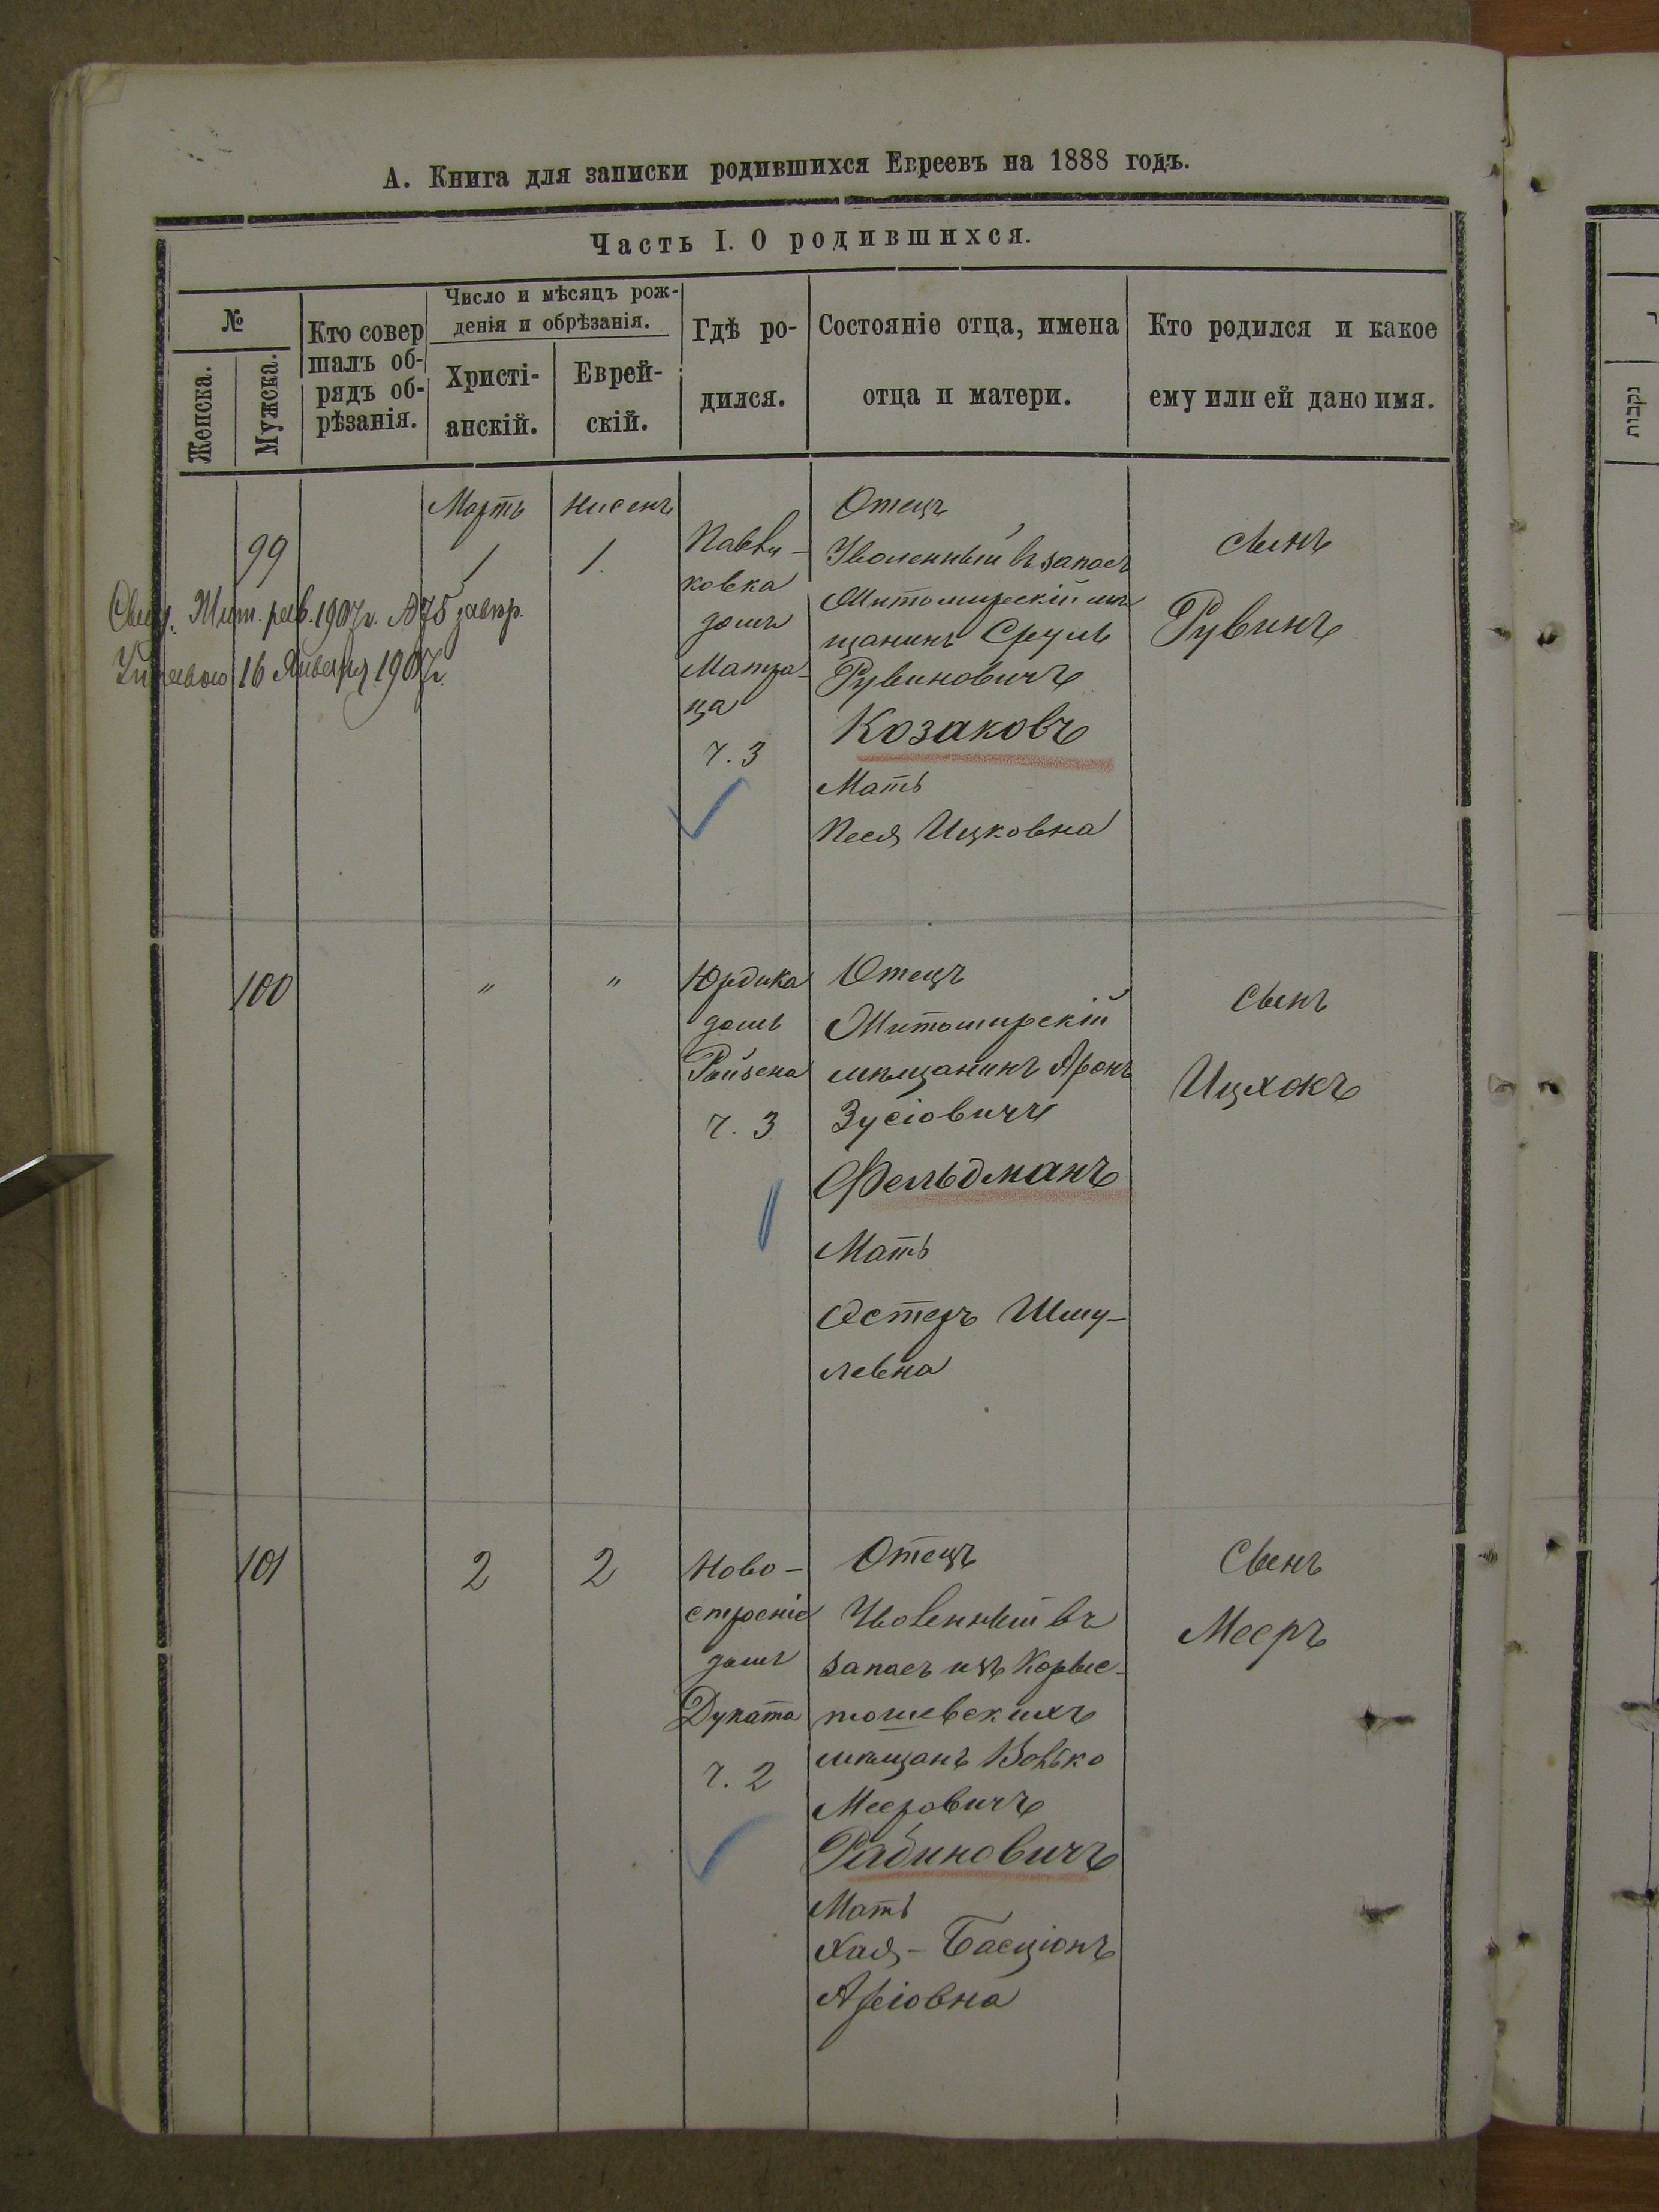 А. Книга для записки родившихся Евреевъ на 1888 годъ.
Часть I. О родившихся.
№
Женска.
Мужска.
Кто совер
шалъ об-
рядъ об-
рѣзанія.
Число и мѣсяцъ рож-
денія и обрѣзанія.
Христі-
анскій.
Еврей-
скій.
Гдѣ ро-
дился.
Состояніе отца, имена
отца и матери.
Кто родился и какое
ему или ей дано имя.
99
Мартъ
1
Нисенъ
1.
Павли-
ковка
домъ
Матза-
ца
ч. 3
Отецъ
Уволенный въ запасъ
Житомирскій мѣ
щанинъ Сруль
Рувиновичъ
Козаковъ
Мать
Песя Ицковна
сынъ
Рувинъ
Жит. рав. 1907г. №75
16 Января 1907г.
100
"
"
Юрдика
домъ
Ройзена
ч. 3
Отецъ
Житомирскій
мѣщанинъ Аронъ
Зусіовичъ
Фельдманъ
Мать
Эстеръ Шму-
левна
сынъ
Ицхокъ
101
2
2
Ново-
строеніе
домъ
Дуката
ч. 2
Отецъ
Уволенный въ
запасъ изъ Корыс-
тошевскихъ
мѣщанъ Волько
Мееровичъ
Рабиновичъ
Мать
Хая-Басціонъ
Аріовна
Сынъ
Мееръ
נקבות